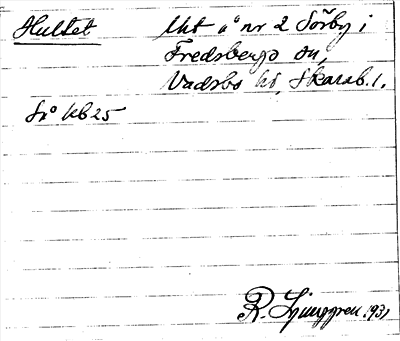 Hultet Uht å nr 2 Sörby i
Fredsbergs sn,
Vadsbo hd, Skarab. l.
Så Ub 25
R. Ljunggren. 1931